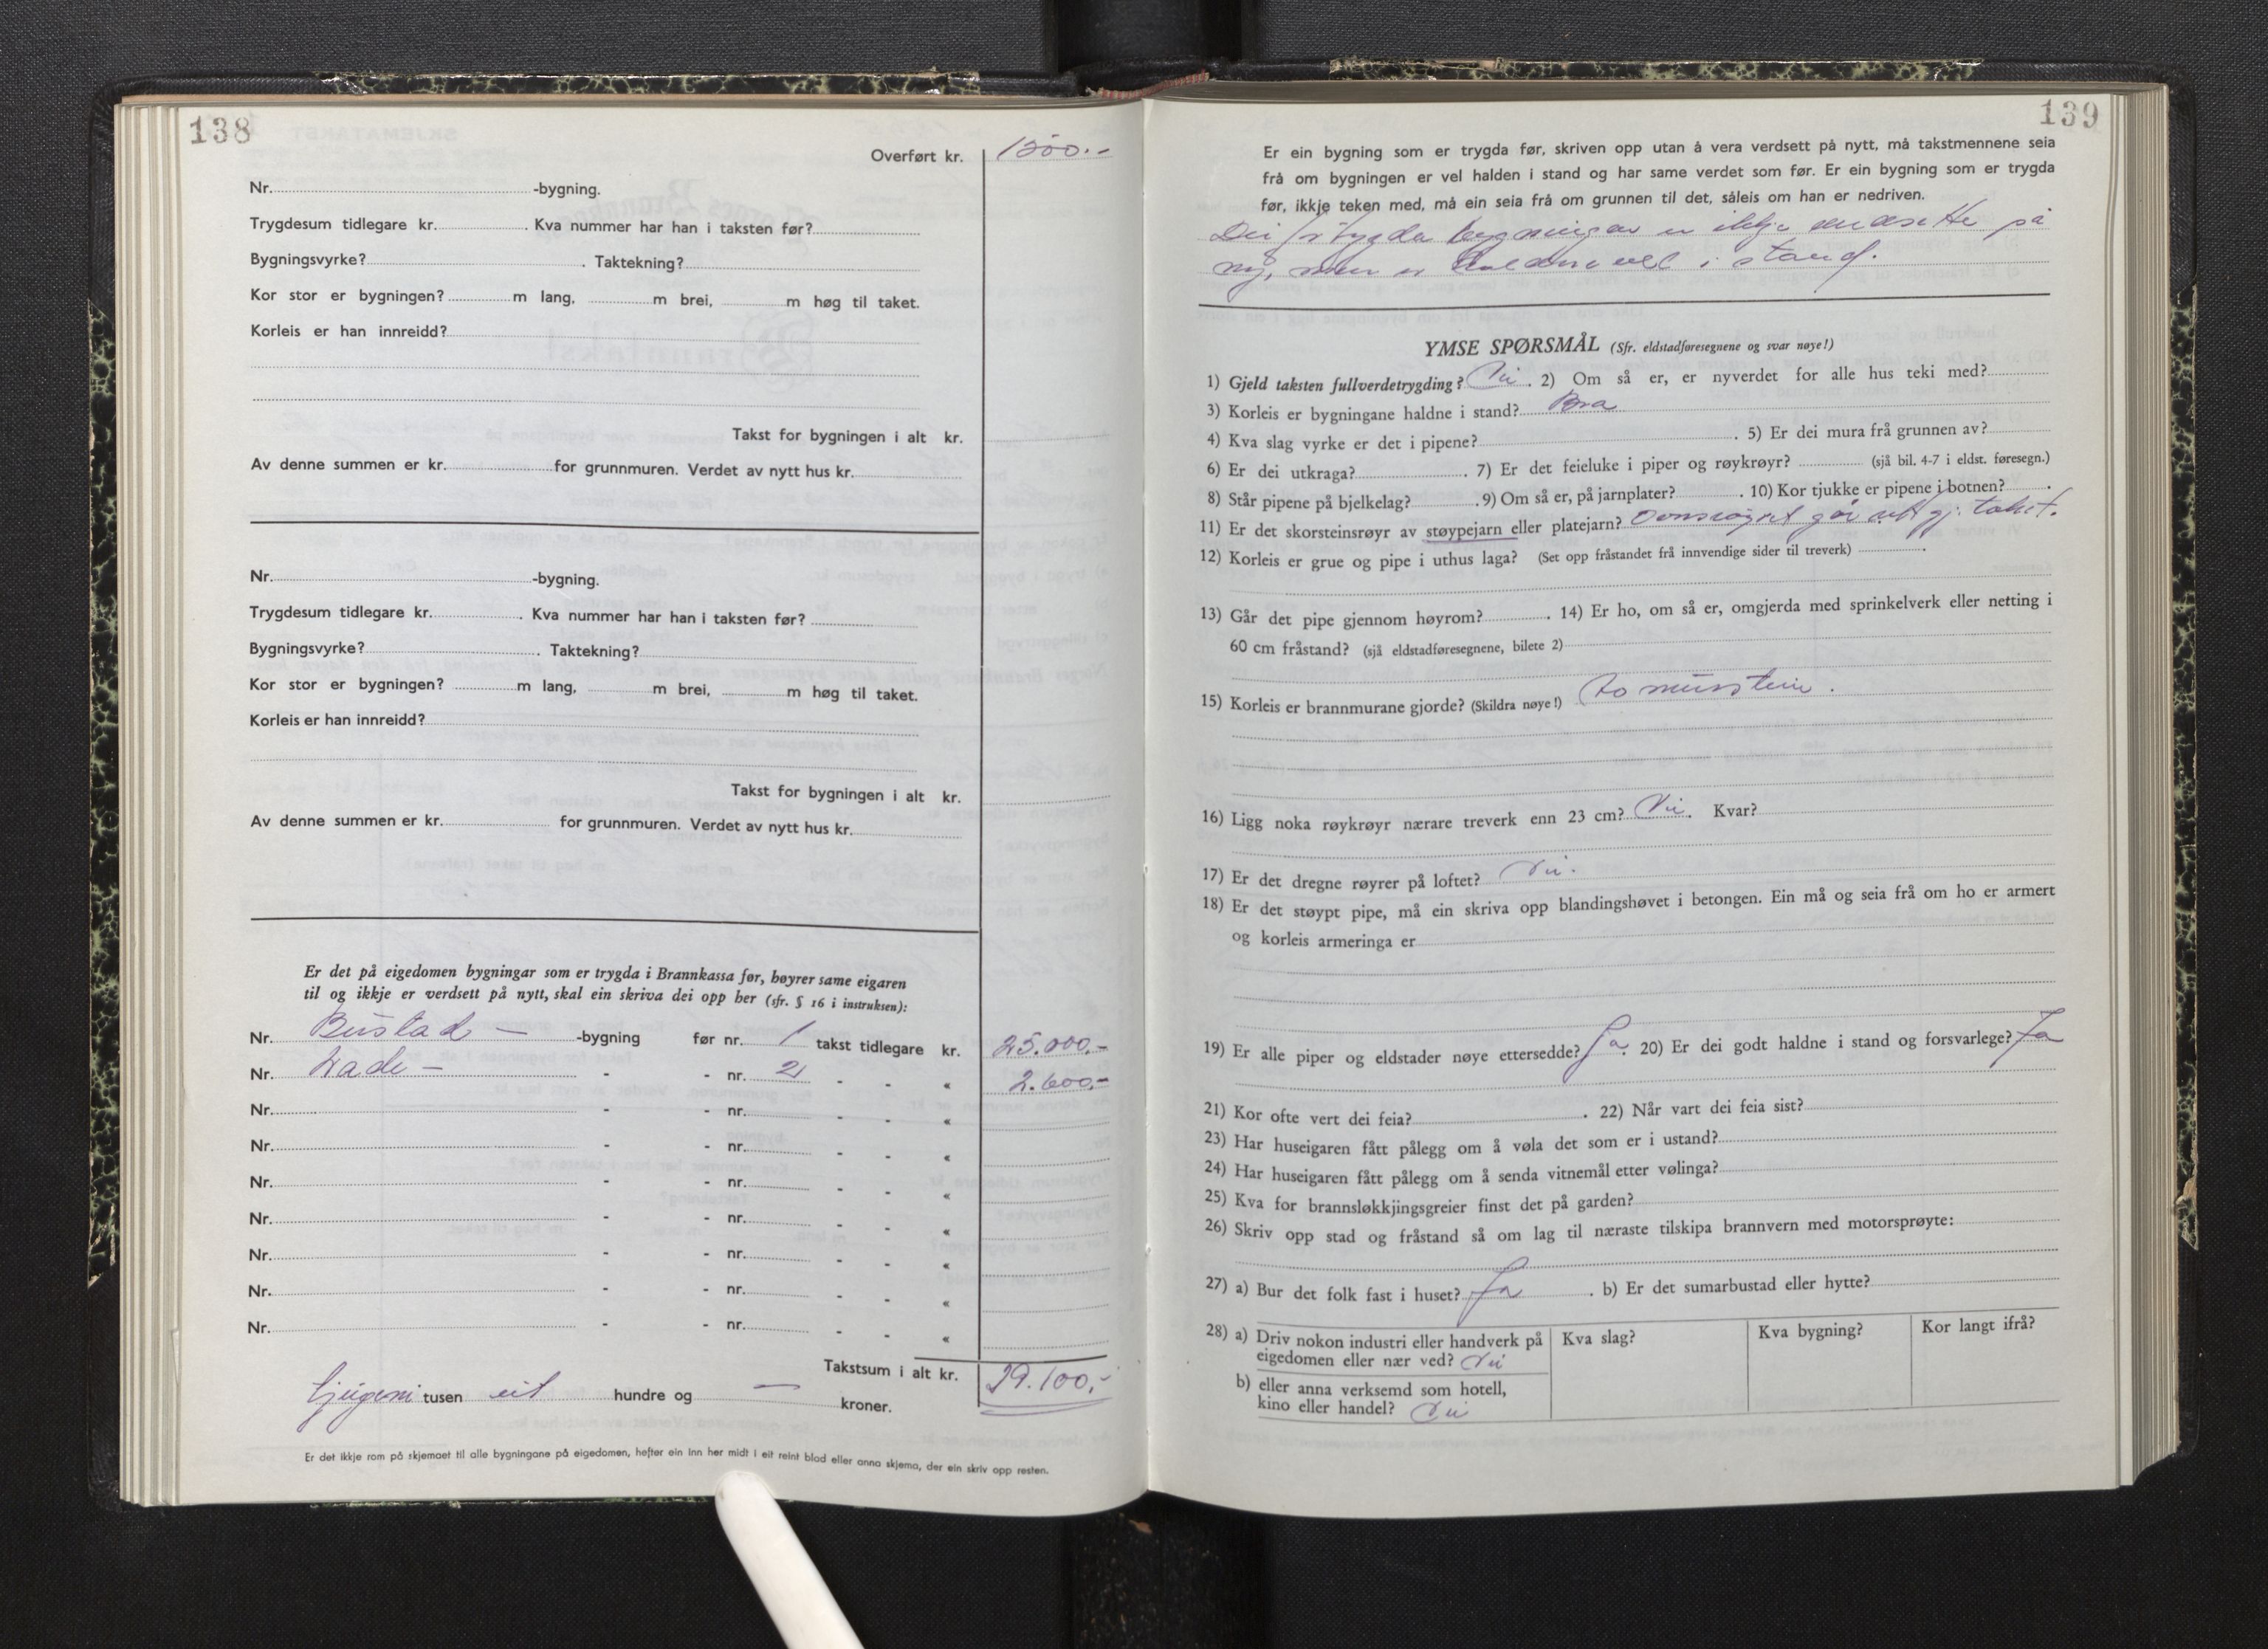 138
Overført kr. 1500.-
Nr. -bygning.
Trygdesum tidlegare kr. . Kva nummer har han i taksten før?
Bygningsvyrke? . Taktekning?
Kor stor er bygningen? m lang, m brei, m høg til taket.
Korleis er han innreidd?
Takst for bygningen i alt kr.
Av denne summen er kr. for grunnmuren. Verdet av nytt hus kr.
Nr. -bygning.
Trygdesum tidlegare kr. . Kva nummer har han i taksten før?
Bygningsvyrke? . Taktekning?
Kor stor er bygningen? m lang, m brei, m høg til taket.
Korleis er han innreidd?
Takst for bygningen i alt kr.
Av denne summen er kr. for grunnmuren. Verdet av nytt hus kr.
Er det på eigedomen bygningar som er trygda i Brannkassa før, høyrer same eigaren
til og ikkje er verdsett på nytt, skal ein skriva dei opp her (sfr. § 16 i instruksen):
Nr. Bustad - -bygning før nr. 1 takst tidlegare kr. 25.000.-
Nr. Lade - - - nr. 2 - - « 2.600,-
Nr. - - nr. - - «
Nr. - - nr. - - «
Nr. - - nr. - - «
Nr. - - nr. - - «
Nr. - - nr. - - «
Nr. - - nr. - - «
Nr. - - nr. - - «
Takstsum i alt kr. 29.100,-
tjugeni tusen eit hundre og — kroner.
Er det ikkje rom på skjemaet til alle bygningane på eigedomen, hefter ein inn her midt i eit reint blad eller anna skjema, der ein skriv opp resten.
139
Er ein bygning som er trygda før, skriven opp utan å vera verdsett på nytt, må takstmennene seia
frå om bygningen er vel halden i stand og har same verdet som før. Er ein bygning som er trygda
før, ikkje teken med, må ein seia frå om grunnen til det, såleis om han er nedriven.
Dei før trygda bygningar er ikkje verdsette på
ny, men er haldne vel i stand.
YMSE SPØRSMÅL (Sfr. eldstadføresegnene og svar nøye!)
1) Gjeld taksten fullverdetrygding? Nei. 2) Om så er, er nyverdet for alle hus teki med?
3) Korleis er bygningane haldne i stand? Bra
4) Kva slag vyrke er det i pipene? . 5) Er dei mura frå grunnen av?
6) Er dei utkraga? . 7) Er det feieluke i piper og røykrøyr? (sjå bil. 4-7 i eldst. føresegn.)
8) Står pipene på bjelkelag? . 9) Om så er, på jarnplater? . 10) Kor tjukke er pipene i botnen? .
11) Er det skorsteinsrøyr av støypejarn eller platejarn? Omnsrøyret går ut gj. taket.
12) Korleis er grue og pipe i uthus laga? (Set opp fråstandet frå innvendige sider til treverk) .
13) Går det pipe gjennom høyrom? . 14) Er ho, om så er, omgjerda med sprinkelverk eller netting i
60 cm fråstand? (sjå eldstadføresegnene, bilete 2)
15) Korleis er brannmurane gjorde? (Skildra nøye!) Av murstein.
16) Ligg noka røykrøyr nærare treverk enn 23 cm? Nei. Kvar?
17) Er det dregne røyrer på loftet? Nei.
18) Er det støypt pipe, må ein skriva opp blandingshøvet i betongen. Ein må og seia frå om ho er armert
og korleis armeringa er
19) Er alle piper og eldstader nøye ettersedde? Ja. 20) Er dei godt haldne i stand og forsvarlege? Ja
21) Kor ofte vert dei feia? . 22) Når vart dei feia sist?
23) Har huseigaren fått pålegg om å vøla det som er i ustand?
24) Har huseigaren fått pålegg om å senda vitnemål etter vølinga?
25) Kva for brannsløkkjingsgreier finst det på garden?
26) Skriv opp stad og fråstand så om lag til næraste tilskipa brannvern med motorsprøyte:
27) a) Bur det folk fast i huset? Ja . b) Er det sumarbustad eller hytte?
28) a) Driv nokon industri eller handverk på
eigedomen eller nær ved? Nei
Kva slag?
Kva bygning?
Kor langt ifrå?
b) eller anna verksemd som hotell,
kino eller handel? Nei